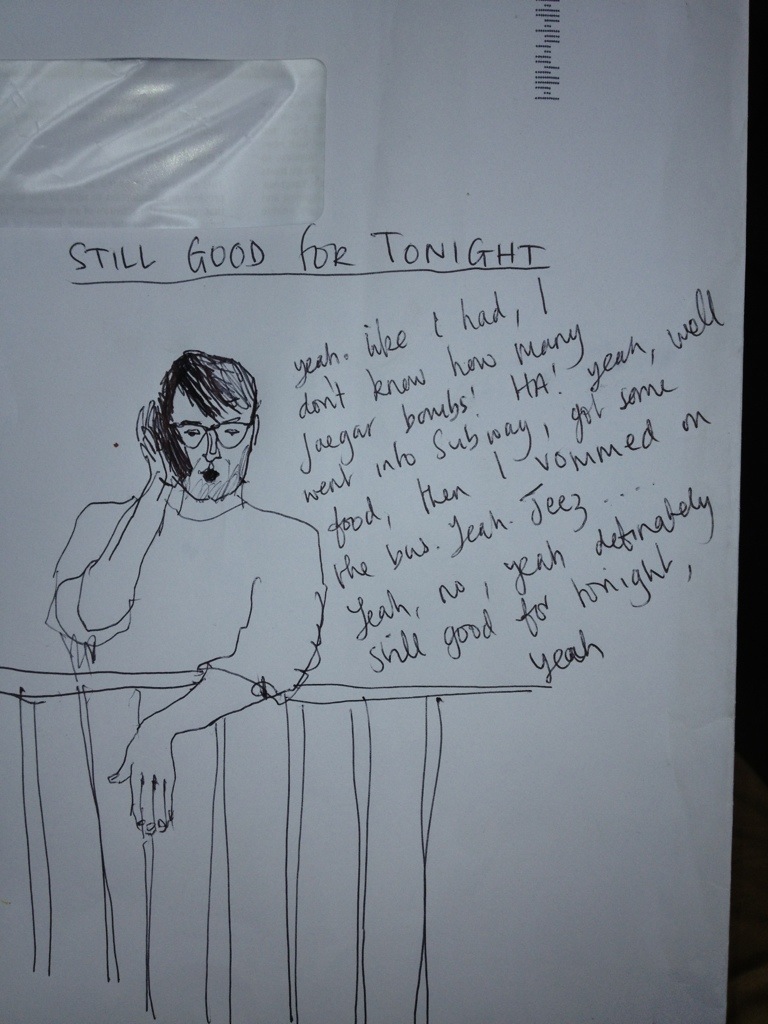 STILL GOOD FOR TONIGHT
yeah. like I had, I
don't know how many
Jaegar bombs! HA! yeah, well
went into Subway, got some
food, then I vommed on
the bus. Yeah. Jeez.....
Yeah, no, yeah definately
still good for tonight,
yeah